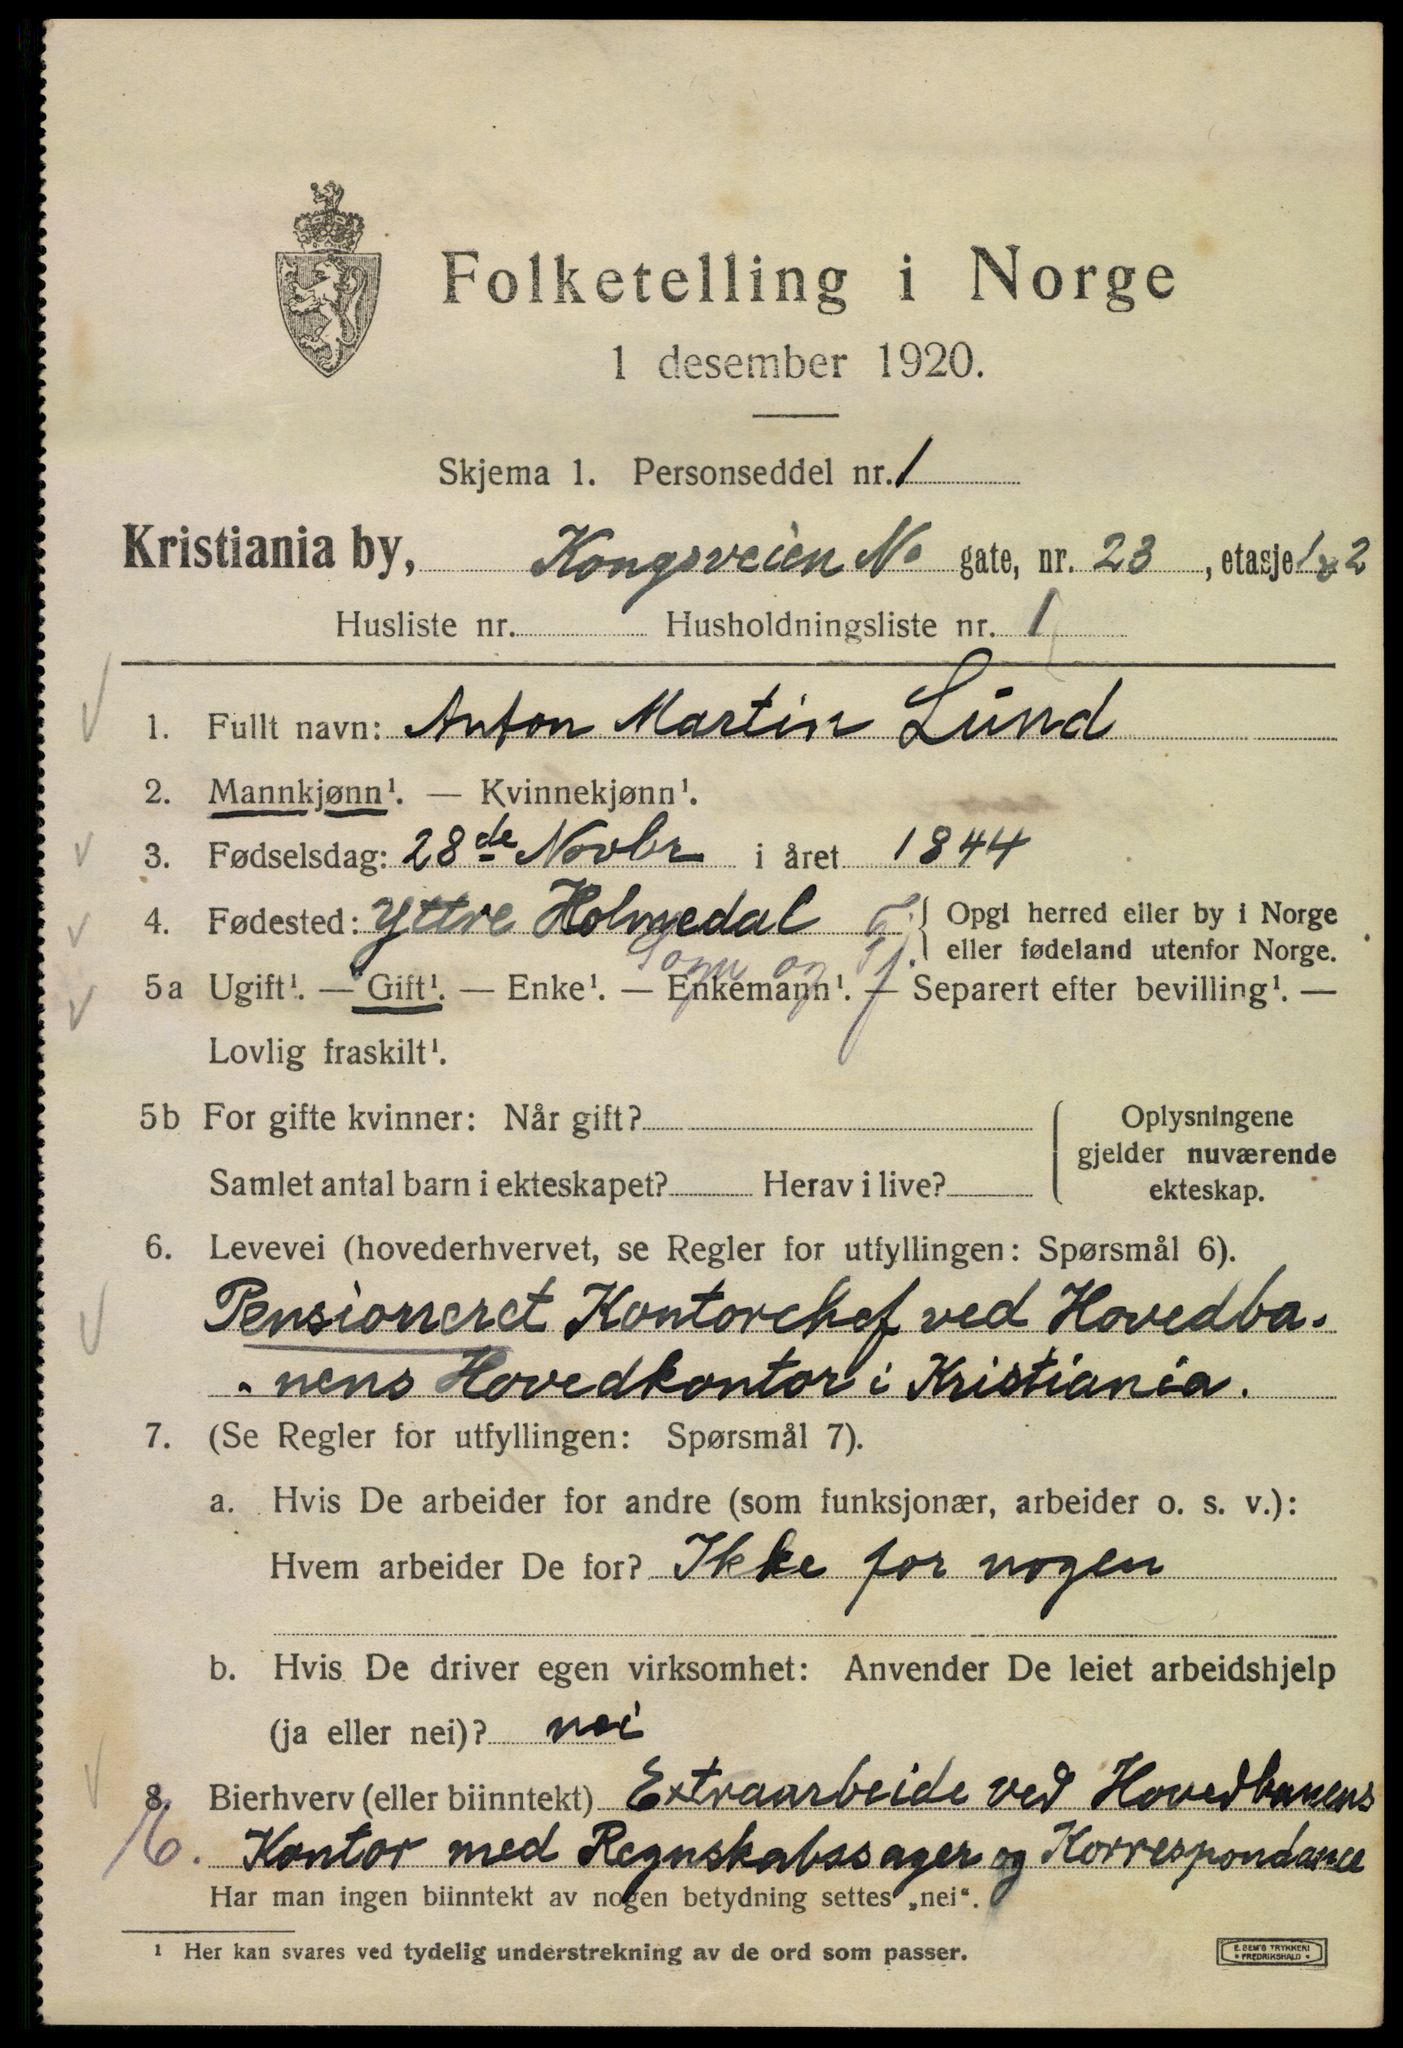 Folketelling i Norge
1 desember 1920.
Skjema 1. Personseddel nr. 1
Kristiania by, Kongsveien No gate, nr. 23, etasje 1 & 2
Husliste nr. Husholdningsliste nr. 1
1. Fullt navn: Anton Martin Lund
2. Mannkjønn¹. — Kvinnekjønn¹.
3. Fødselsdag: 28de Novbr i året 1844
4. Fødested: Yttre Holmedal
Opgi herred eller by i Norge
eller fødeland utenfor Norge.
Sogn og Fj.
5a Ugift¹. — Gift¹. — Enke¹. — Enkemann¹. — Separert efter bevilling¹. —
Lovlig fraskilt¹.
5b For gifte kvinner: Når gift?
Samlet antal barn i ekteskapet? Herav i live?
Oplysningene
gjelder nuværende
ekteskap.
6. Levevei (hovederhvervet, se Regler for utfyllingen: Spørsmål 6).
Pensioneret Kontorchef ved Hovedba-
-nens Hovedkontor i Kristiania.
7. (Se Regler for utfyllingen: Spørsmål 7).
a. Hvis De arbeider for andre (som funksjonær, arbeider o. s. v.):
Hvem arbeider De for? Ikke for nogen
b. Hvis De driver egen virksomhet: Anvender De leiet arbeidshjelp
(ja eller nei)? nei
8. Bierhverv (eller biinntekt) Extraarbeide ved Hovedbanens
Kontor med Regnskabssager og Korrespondance
Har man ingen biinntekt av nogen betydning settes „nei“.
¹ Her kan svares ved tydelig understrekning av de ord som passer.
E. SEM'S TRYKKERI
FREDRIKSHALD